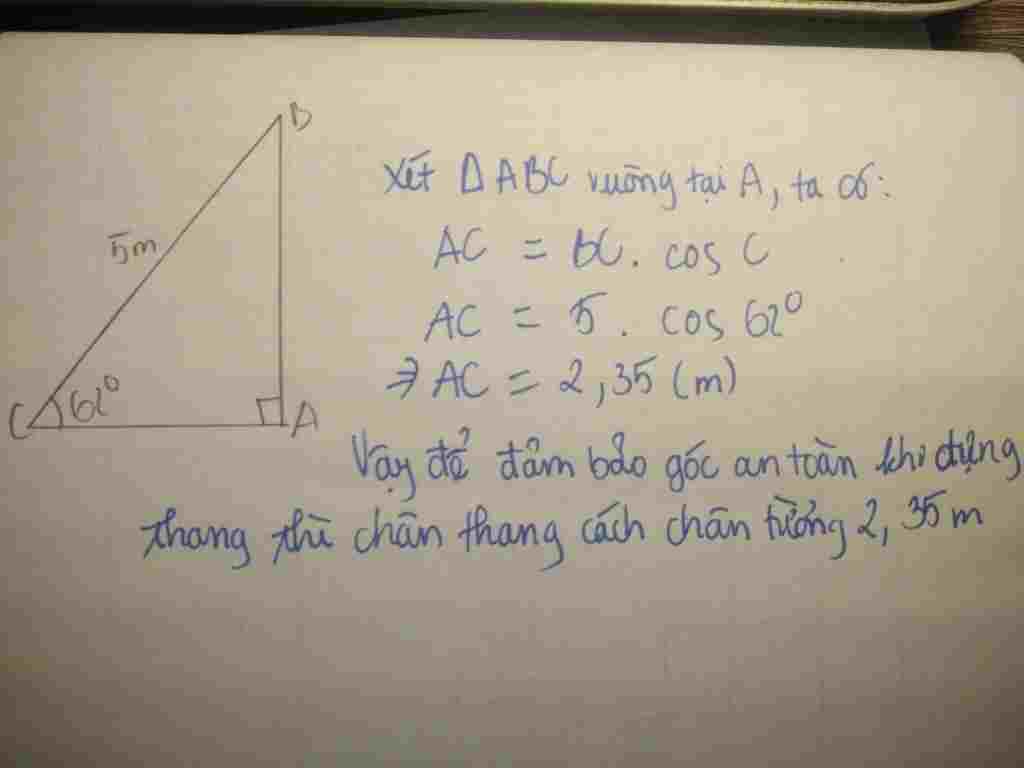 B
5m
C 62° A
Xét Δ ABC vuông tại A, ta có:
AC = BC. cos C
AC = 5. cos 62°
⇒ AC = 2,35 (m)
Vậy để đảm bảo góc an toàn khi dựng
thang thì chân thang cách chân tường 2,35m